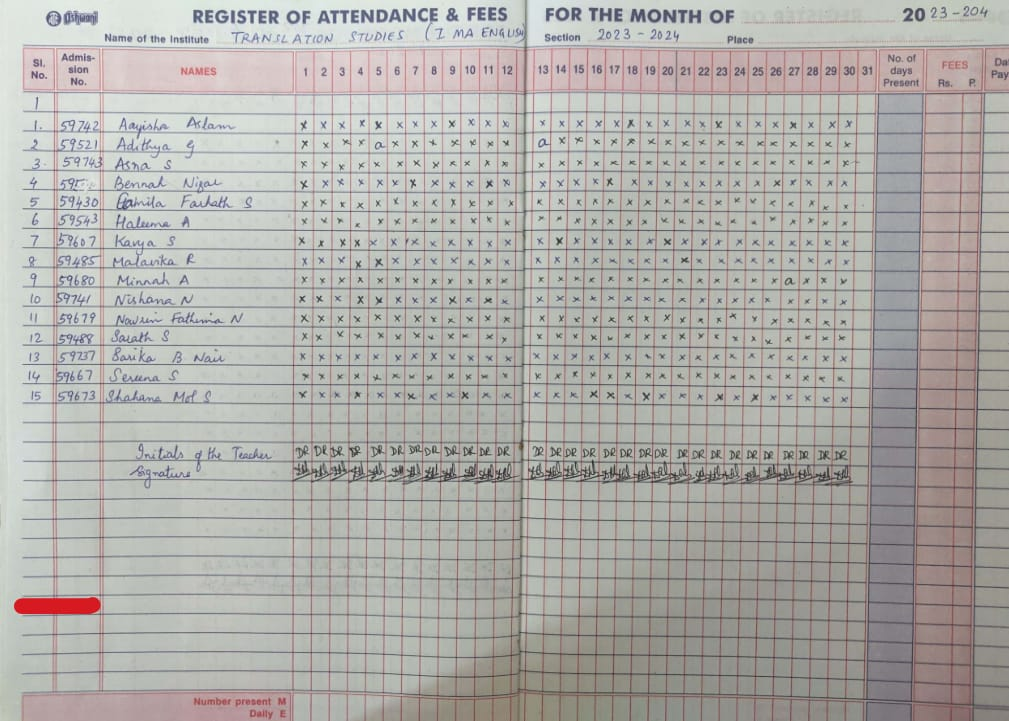 Ashwani REGISTER OF ATTENDANCE & FEES FOR THE MONTH OF 2023-204
Name of the Institute TRANSLATION STUDIES (I MA ENGLISH) Section 2023-2024 Place
Sl. No. Admis-sion No. NAMES 1 2 3 4 5 6 7 8 9 10 11 12 13 14 15 16 17 18 19 20 21 22 23 24 25 26 27 28 29 30 31 No. of days Present FEES Rs. P. Da Pay
1
1. 59742 Aayisha Aslam x x x x x x x x x x x x x x x x x x x x x x x x x x x x x x
2 59521 Adithya G x x x x a x x x x x x x a x x x x x x x x x x x x x x x x x
3. 59743 Asna S x x x x x x x x x x x x x x x x x x x x x x x x x x x x x x
4 Bennah Nizar x x x x x x x x x x x x x x x x x x x x x x x x x x x x x x
5 59430 Gamila Farhath S x x x x x x x x x x x x x x x x x x x x x x x x x x x x x x
6 59543 Haleema A x x x x x x x x x x x x x x x x x x x x x x x x x x x x x x
7 59607 Kavya S x x x x x x x x x x x x x x x x x x x x x x x x x x x x x x
8 59485 Malavika R x x x x x x x x x x x x x x x x x x x x x x x x x x x x x x
9 59680 Minnah A x x x x x x x x x x x x x x x x x x x x x x x x x x a x x x
10 59741 Nishana N x x x x x x x x x x x x x x x x x x x x x x x x x x x x x x
11 59679 Nowrin Fathima N x x x x x x x x x x x x x x x x x x x x x x x x x x x x x x
12 59488 Sarath S x x x x x x x x x x x x x x x x x x x x x x x x x x x x x x
13 59737 Sarika B Nair x x x x x x x x x x x x x x x x x x x x x x x x x x x x x x
14 59667 Sereena S x x x x x x x x x x x x x x x x x x x x x x x x x x x x x x
15 59673 Shahana Mol S x x x x x x x x x x x x x x x x x x x x x x x x x x x x x x
Initials of the Teacher DR DR DR DR DR DR DR DR DR DR DR DR DR DR DR DR DR DR DR DR DR DR DR DR DR DR DR DR DR DR
Signature
Number present M
Daily E